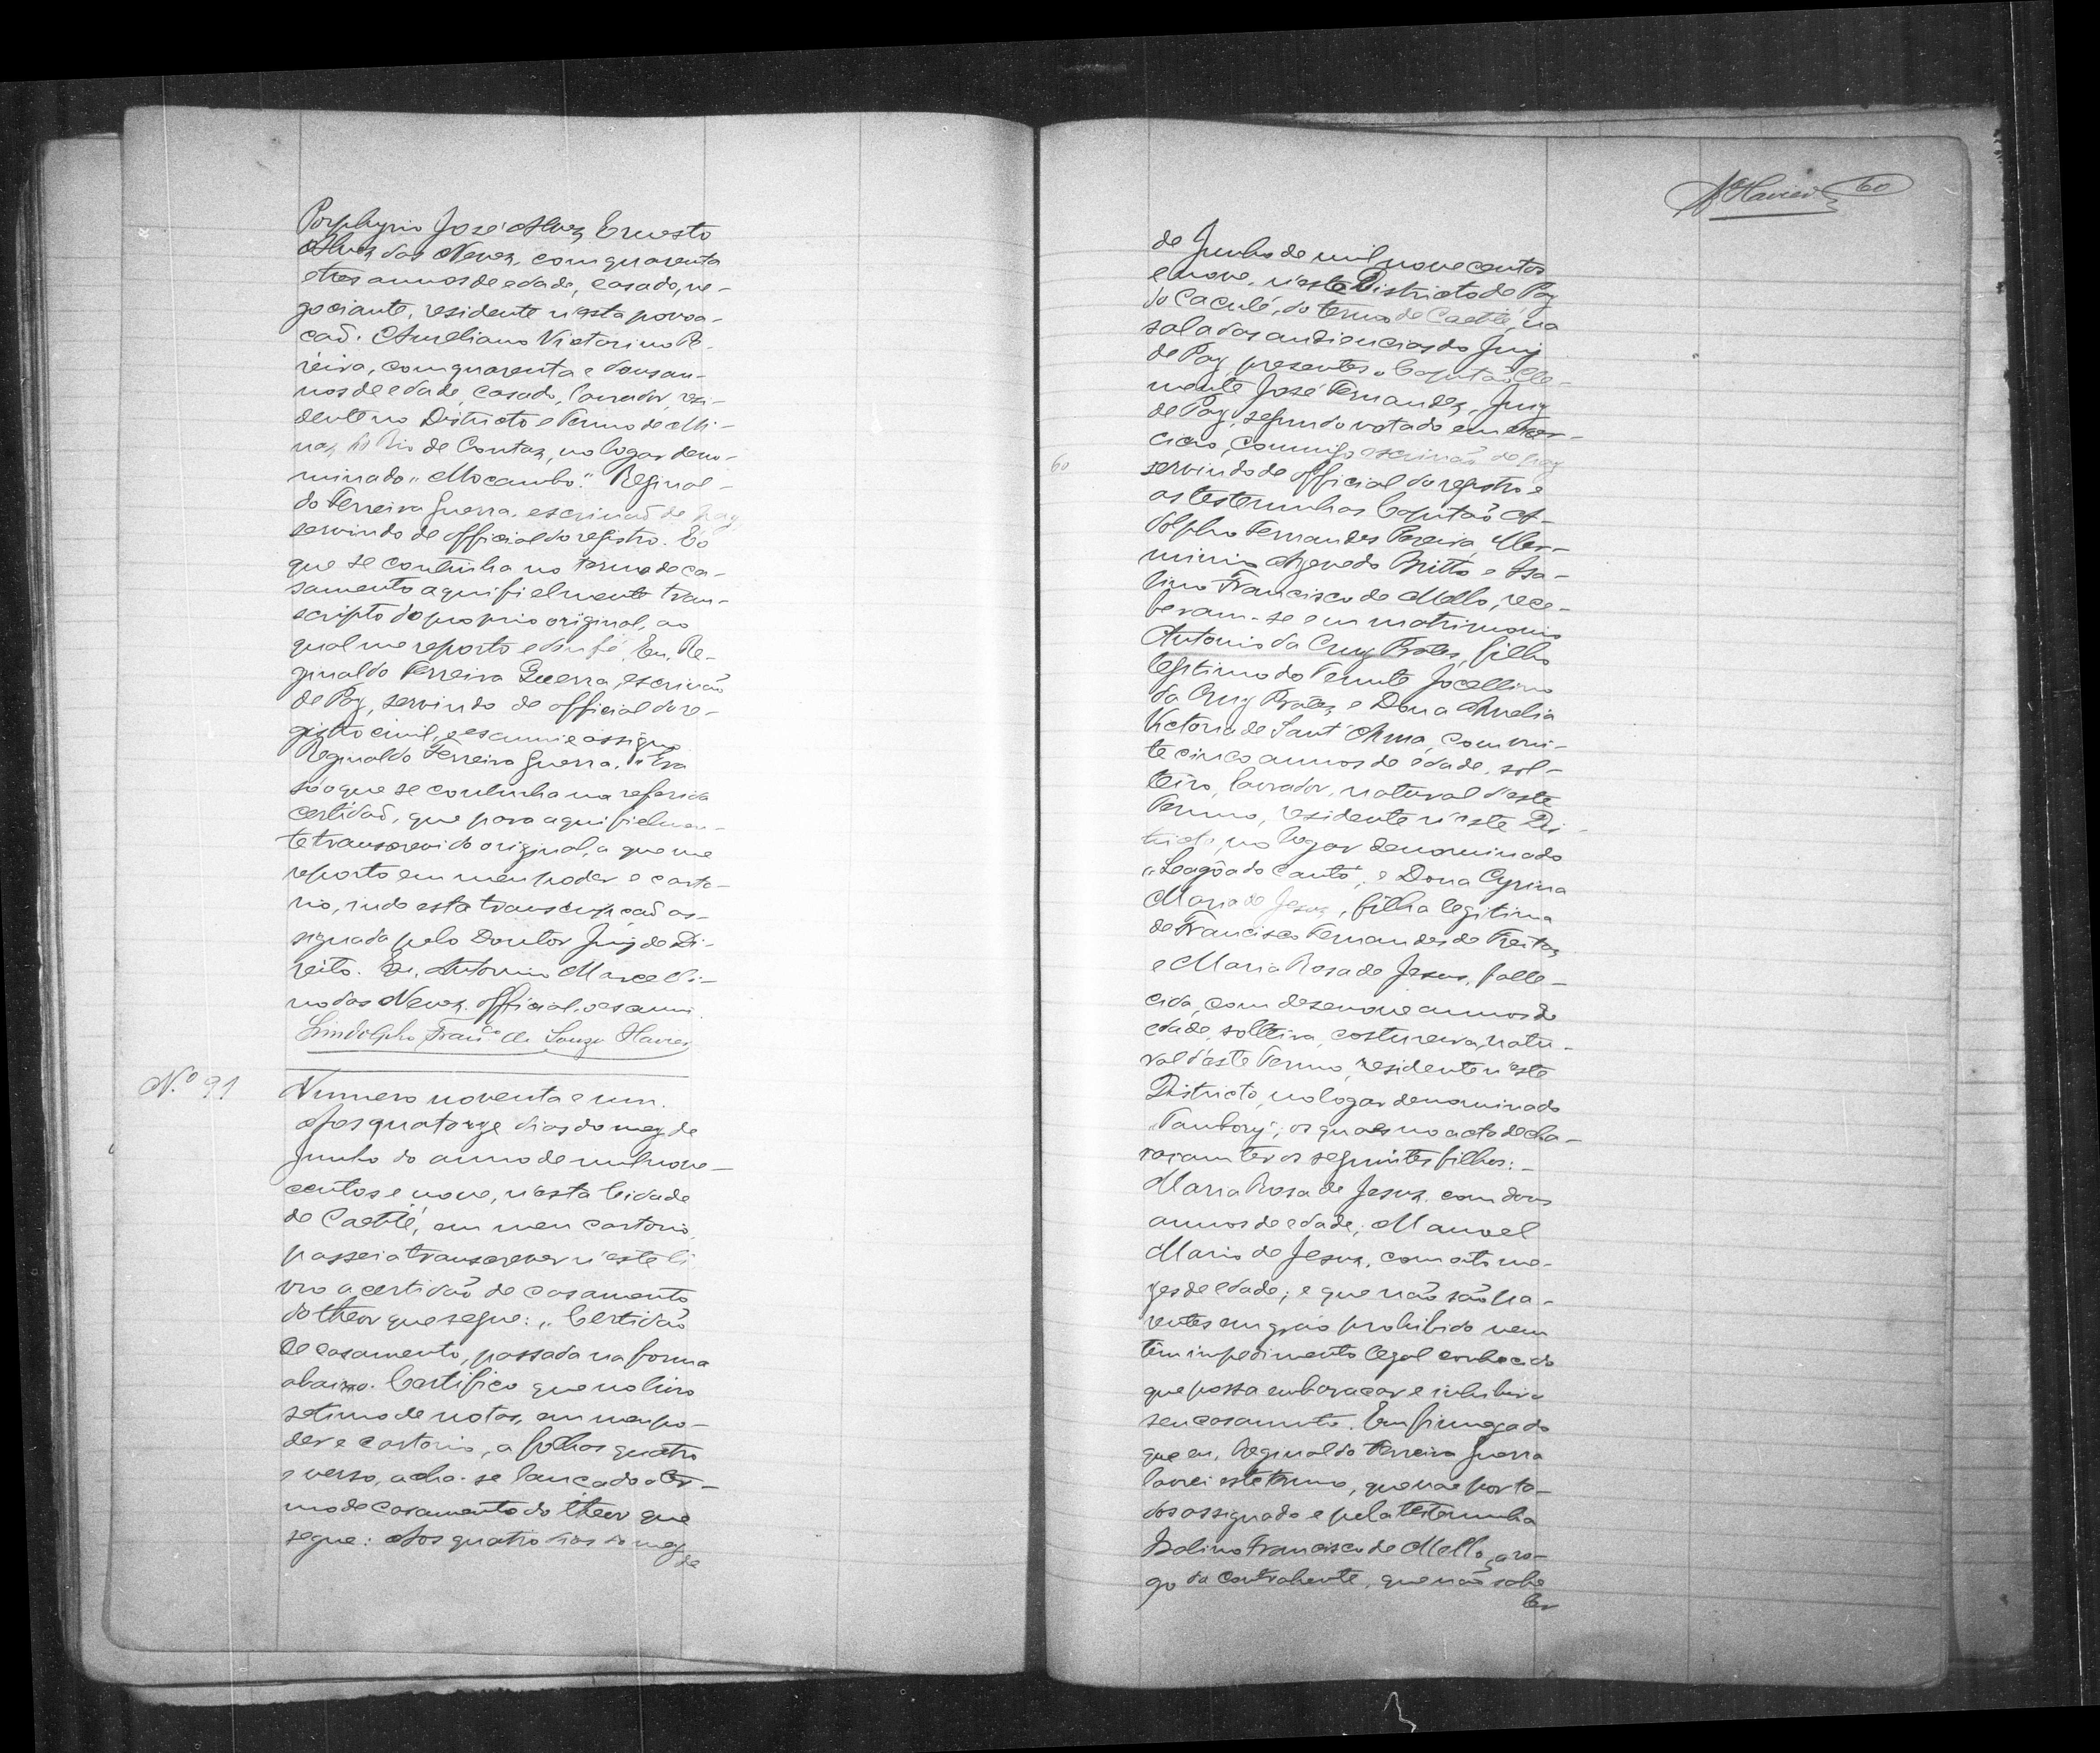 Porphyrio José Alves, Ernesto
Alves das Neves, com quarenta
e tres annos de edade, casado, ne-
gociante, residente n'esta povoa-
caõ. Aureliano Victorino Pe-
reira, com quarenta e dous an-
nos de edade, casado, lavrador, resi-
dente no Districto e Termo de Mi-
nas do Rio de Contas, no logar deno-
minado "Mocambo." Reginal-
do Ferreira Guerra, escrivaõ de paz
servindo de official do registro. E o
que se continha no termo de ca-
samento aqui fielmente tran-
scripto do proprio original, ao
qual me reporto e dou fé. Eu, Re-
ginaldo Ferreira Guerra, escrivão
de Paz, servindo de official do re-
gistro civil, escrevi e assigno
Reginaldo Ferreira Guerra. Era
só o que se continha na referida
certidaõ, que para aqui fielmen-
te transcrevi do original, a que me
reporto em meu poder e carto-
rio, indo esta transcripcaõ as-
signada pelo Doutor Juiz de Di-
reito. Eu, Antonio Marcelli-
no das Neves, official, escrevi.
Lindolpho Franco de Souza Xavier
N.º 91
Numero noventa e um.
Aos quatorze dias do mez de
Junho do anno de mil nove-
centos e nove, n'esta Cidade
de Caetité, em meu cartorio,
passei a transcrever n'este li
vro a certidão de casamento
do theor que segue: "Certidão
de casamento, passada na forma
abaixo. Certifico que no livro
setimo de notas, em meu po-
der e cartorio, a folhas quatro
e verso, acha-se lançado o ter-
mo de casamento do theor que
segue: Aos quatro dias do mez
de
A Xavier 60
de Junho de mil nove centos
e nove, n'este Districto de Paz
do Caculé, do termo de Caetité, na
sala das audiencias do Juiz
de Paz, presentes o Capitão Cle-
mente José Fernandes, Juiz
de Paz, segundo votado em exer-
cicio, commigo escrivaõ de paz
60
servindo de official do registro e
as testemunhas Capitaõ A-
dolpho Fernandes Pereira, Her-
minio Azevedo Britto e Isa-
lino Francisco de Mello, rece-
beram-se em matrimonio
Antonio da Cruz Prates, filho
legitimo do Tenente Jocellino
da Cruz Prates e Dona Amelia
Victoria de Sant'Anna, com vin-
te cinco annos de edade, sol-
teiro, lavrador, natural d'este
Termo, residente n'este Dis-
tricto, no logar denominado
"Lagôa do Canto", e Dona Cyrina
Maria de Jesus, filha legitima
de Francisco Fernandes de Freitas
e Maria Rosa de Jesus, falle-
cida, com desenove annos de
edade, solteira, costureira, natu-
ral d'este Termo, residente n'este
Districto, no logar denominado
"Tambory", os quaes no acto decla-
raram ter os seguintes filhos:-
Maria Rosa de Jesus, com dous
annos de edade; Manoel
Mario de Jesus, com oito me-
zes de edade; e que não são pa-
rentes em gráo prohibido nem
têm impedimento legal conhecido
que possa embaraçar e inhibir o
seu casamento. Em firmeza do
que eu, Reginaldo Ferreira Guerra
lavrei este termo, que vae por to-
dos assignado e pela testemunha
Isalino Francisco de Mello, a ro-
go da contrahente, que não sabe
ler